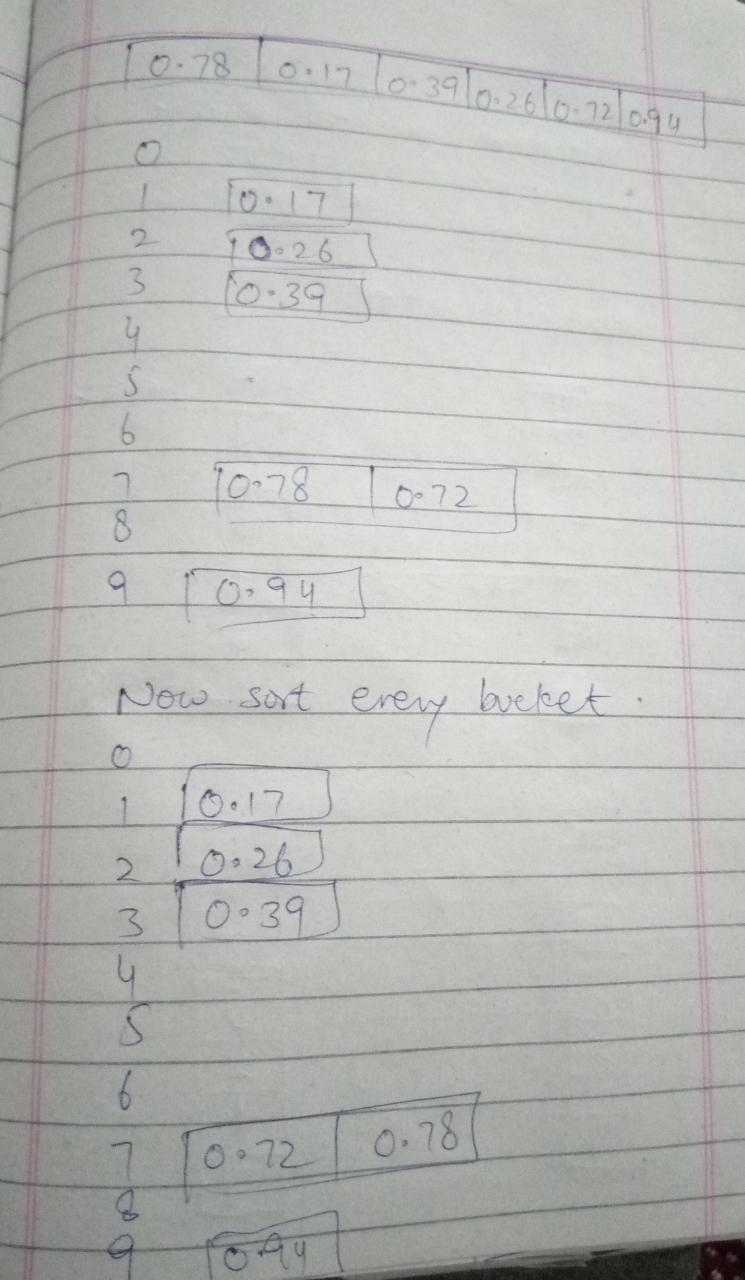 0.78 0.17 0.39 0.26 0.72 0.94
0
1 0.17
2 0.26
3 0.39
4
5
6
7 0.78 0.72
8
9 0.94
Now sort every bucket.
0
1 0.17
2 0.26
3 0.39
4
5
6
7 0.72 0.78
8
9 0.94